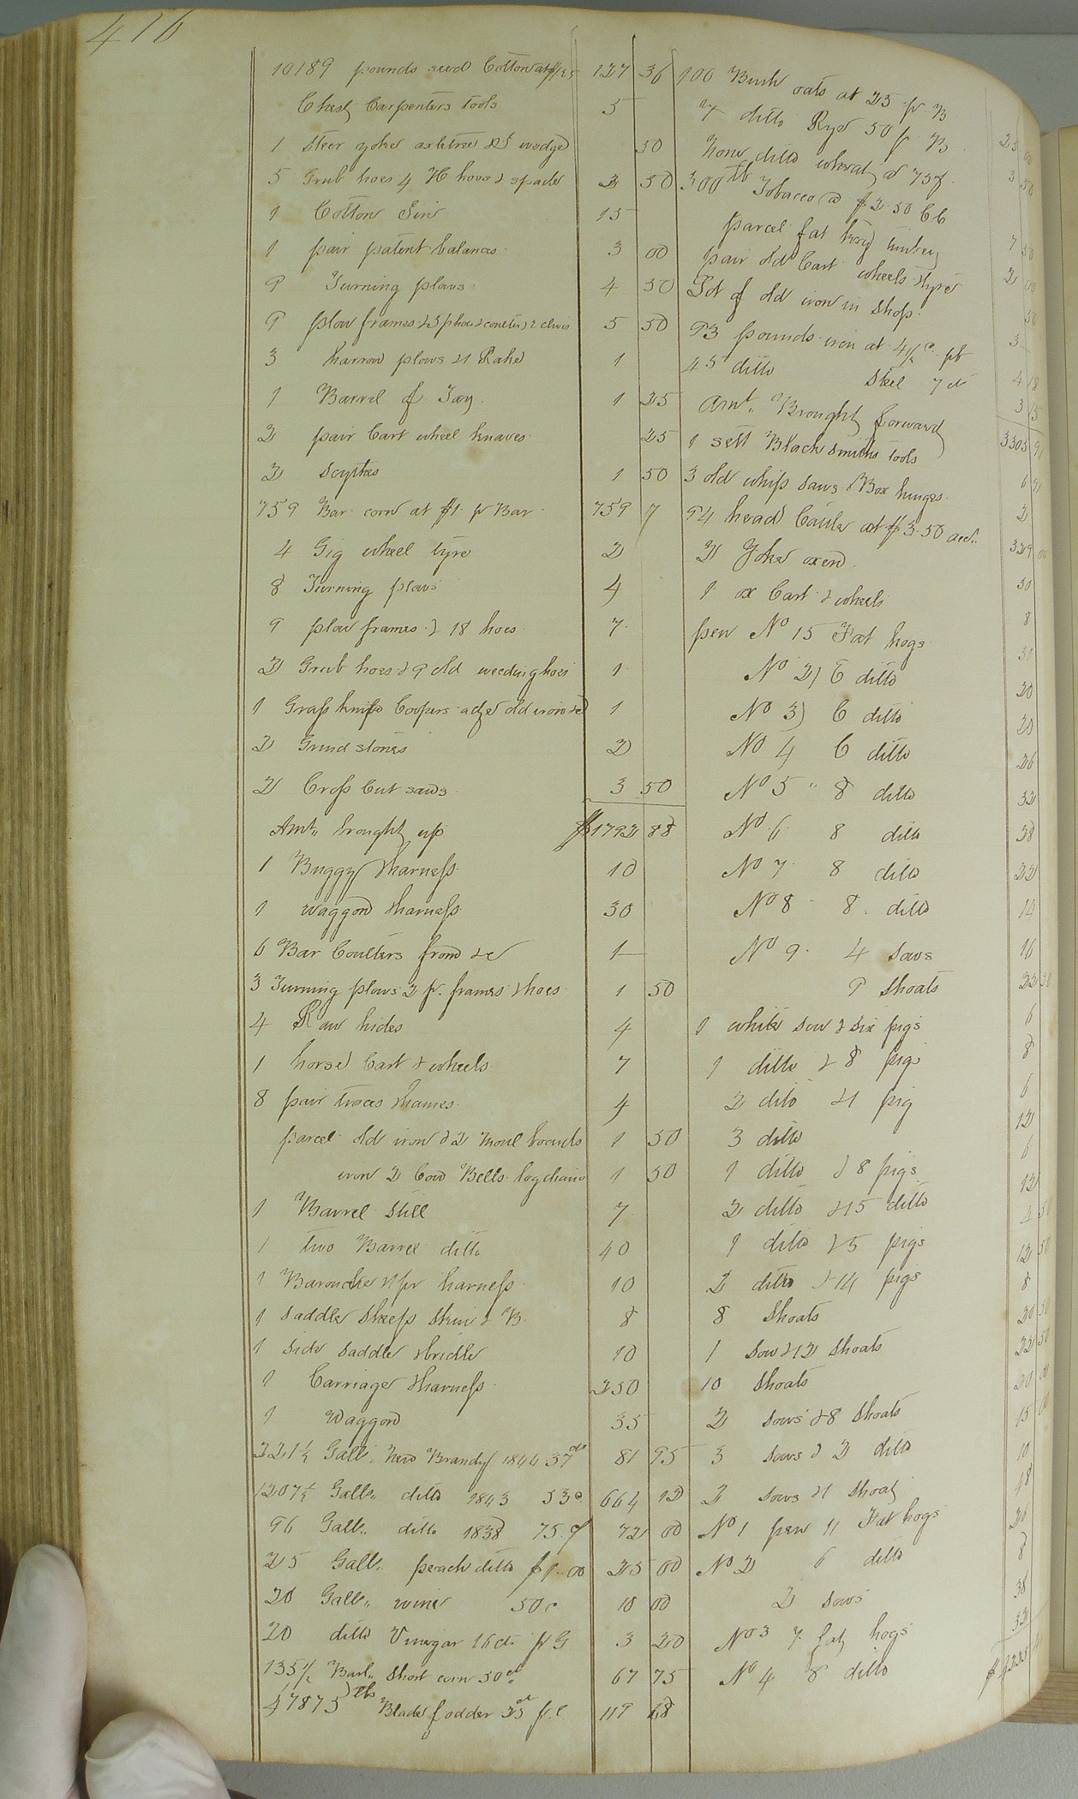 416
10189 pounds seed Cotton at 127 36
Chest Carpenters tools 5
1 Steer yoke axletree & wedge 50
5 Grub hoes 4 H hoes & spade 2 50
1 Cotton Gin 15
1 pair patent balances 3 00
9 Turning plows 4 50
9 plow frames 5 50
3 harrow plows & 1 Rake 1
1 Barrel of Tar 1 25
2 pair Cart wheel knaves 25
2 Scythes 1 50
759 Bar corn at $1 pr Bar 759
4 Gig wheel tyre 2
8 Turning plows 4
9 plow frames & 18 hoes 7
2 Grub hoes & 9 old weeding hoes 1
1 Grass knife Coopers adze old iron &c 1
2 Grind stones 2
2 Cross Cut saws 3 50
Amt,, brought up $1792 88
1 Buggy & harness 10
1 waggon & harness 30
6 Bar Coulters &c 1
3 Turning plows 2 pr. frames & hoes 1 50
4 Raw hides 4
1 horse Cart & wheels 7
8 pair traces & hames 4
parcel old iron & 2 1 50
iron 2 Cow Bells log chain 1 50
1 Barrel Still 7
1 two Barrel ditto 40
1 Barouche & pr harness 10
1 Saddle Sheep Skin & B. 8
1 side saddle & bridle 10
1 Carriage & harness 250
1 Waggon 35
221½ Gall,, New Brandy 1844 37cts 81 95
1207½ Gall,, ditto 1843 55c 664 12
96 Gall,, ditto 1838 75 72 00
25 Gall,, peach ditto $1.00 25 00
20 Gall,, wine 50c 10 00
20 ditto Vinegar 16cts pr G 3 20
135½ Barl,, Short corn 50cts 67 75
47875 lbs Blade fodder 25cts p.c 119 68
100 Bush oats at 25 pr B 25 00
7 ditto Rye 50 pr B 3 50
None ditto wheat at 75
300 lb Tobacco @ $2.50 7 50
parcel fat timber 2 00
pair old Cart wheels & tyre 50
Lot of old iron in Shop 3
93 pounds iron at 4½c 4 18
45 ditto Steel 7cts 3 15
Amt,, Brought forward
1 sett Black smiths tools
3 old whip saws & Box hinges 2
94 head Cattle at $3.50 329
2 Yoke oxen 50
1 ox Cart & wheels 8
pen No 15 Fat hogs
No 2) 6 ditto 20
No 3) 6 ditto 20
No 4 6 ditto 26
No 5 " 8 ditto 32
No 6 8 ditto 28
No 7 8 ditto 22
No 8 8 ditto 14
No 9 4 Sows 16
9 Shoats 22 50
1 white sow & six pigs 6
1 ditto & 8 pigs 8
2 ditto & 1 pig 6
3 ditto 12
1 ditto & 8 pigs 6
2 ditto & 15 ditto 12
1 ditto & 5 pigs 4 50
2 ditto & 14 pigs 12 50
8 Shoats 8
1 Sow & 12 Shoats
10 Shoats
2 sows & 8 Shoats
3 sows & 2 ditto
2 sows & 1 Shoat
No 1 pen 11 Fat hogs
No 2 6 ditto
2 sows
No 3 7 fat hogs
No 4 8 ditto